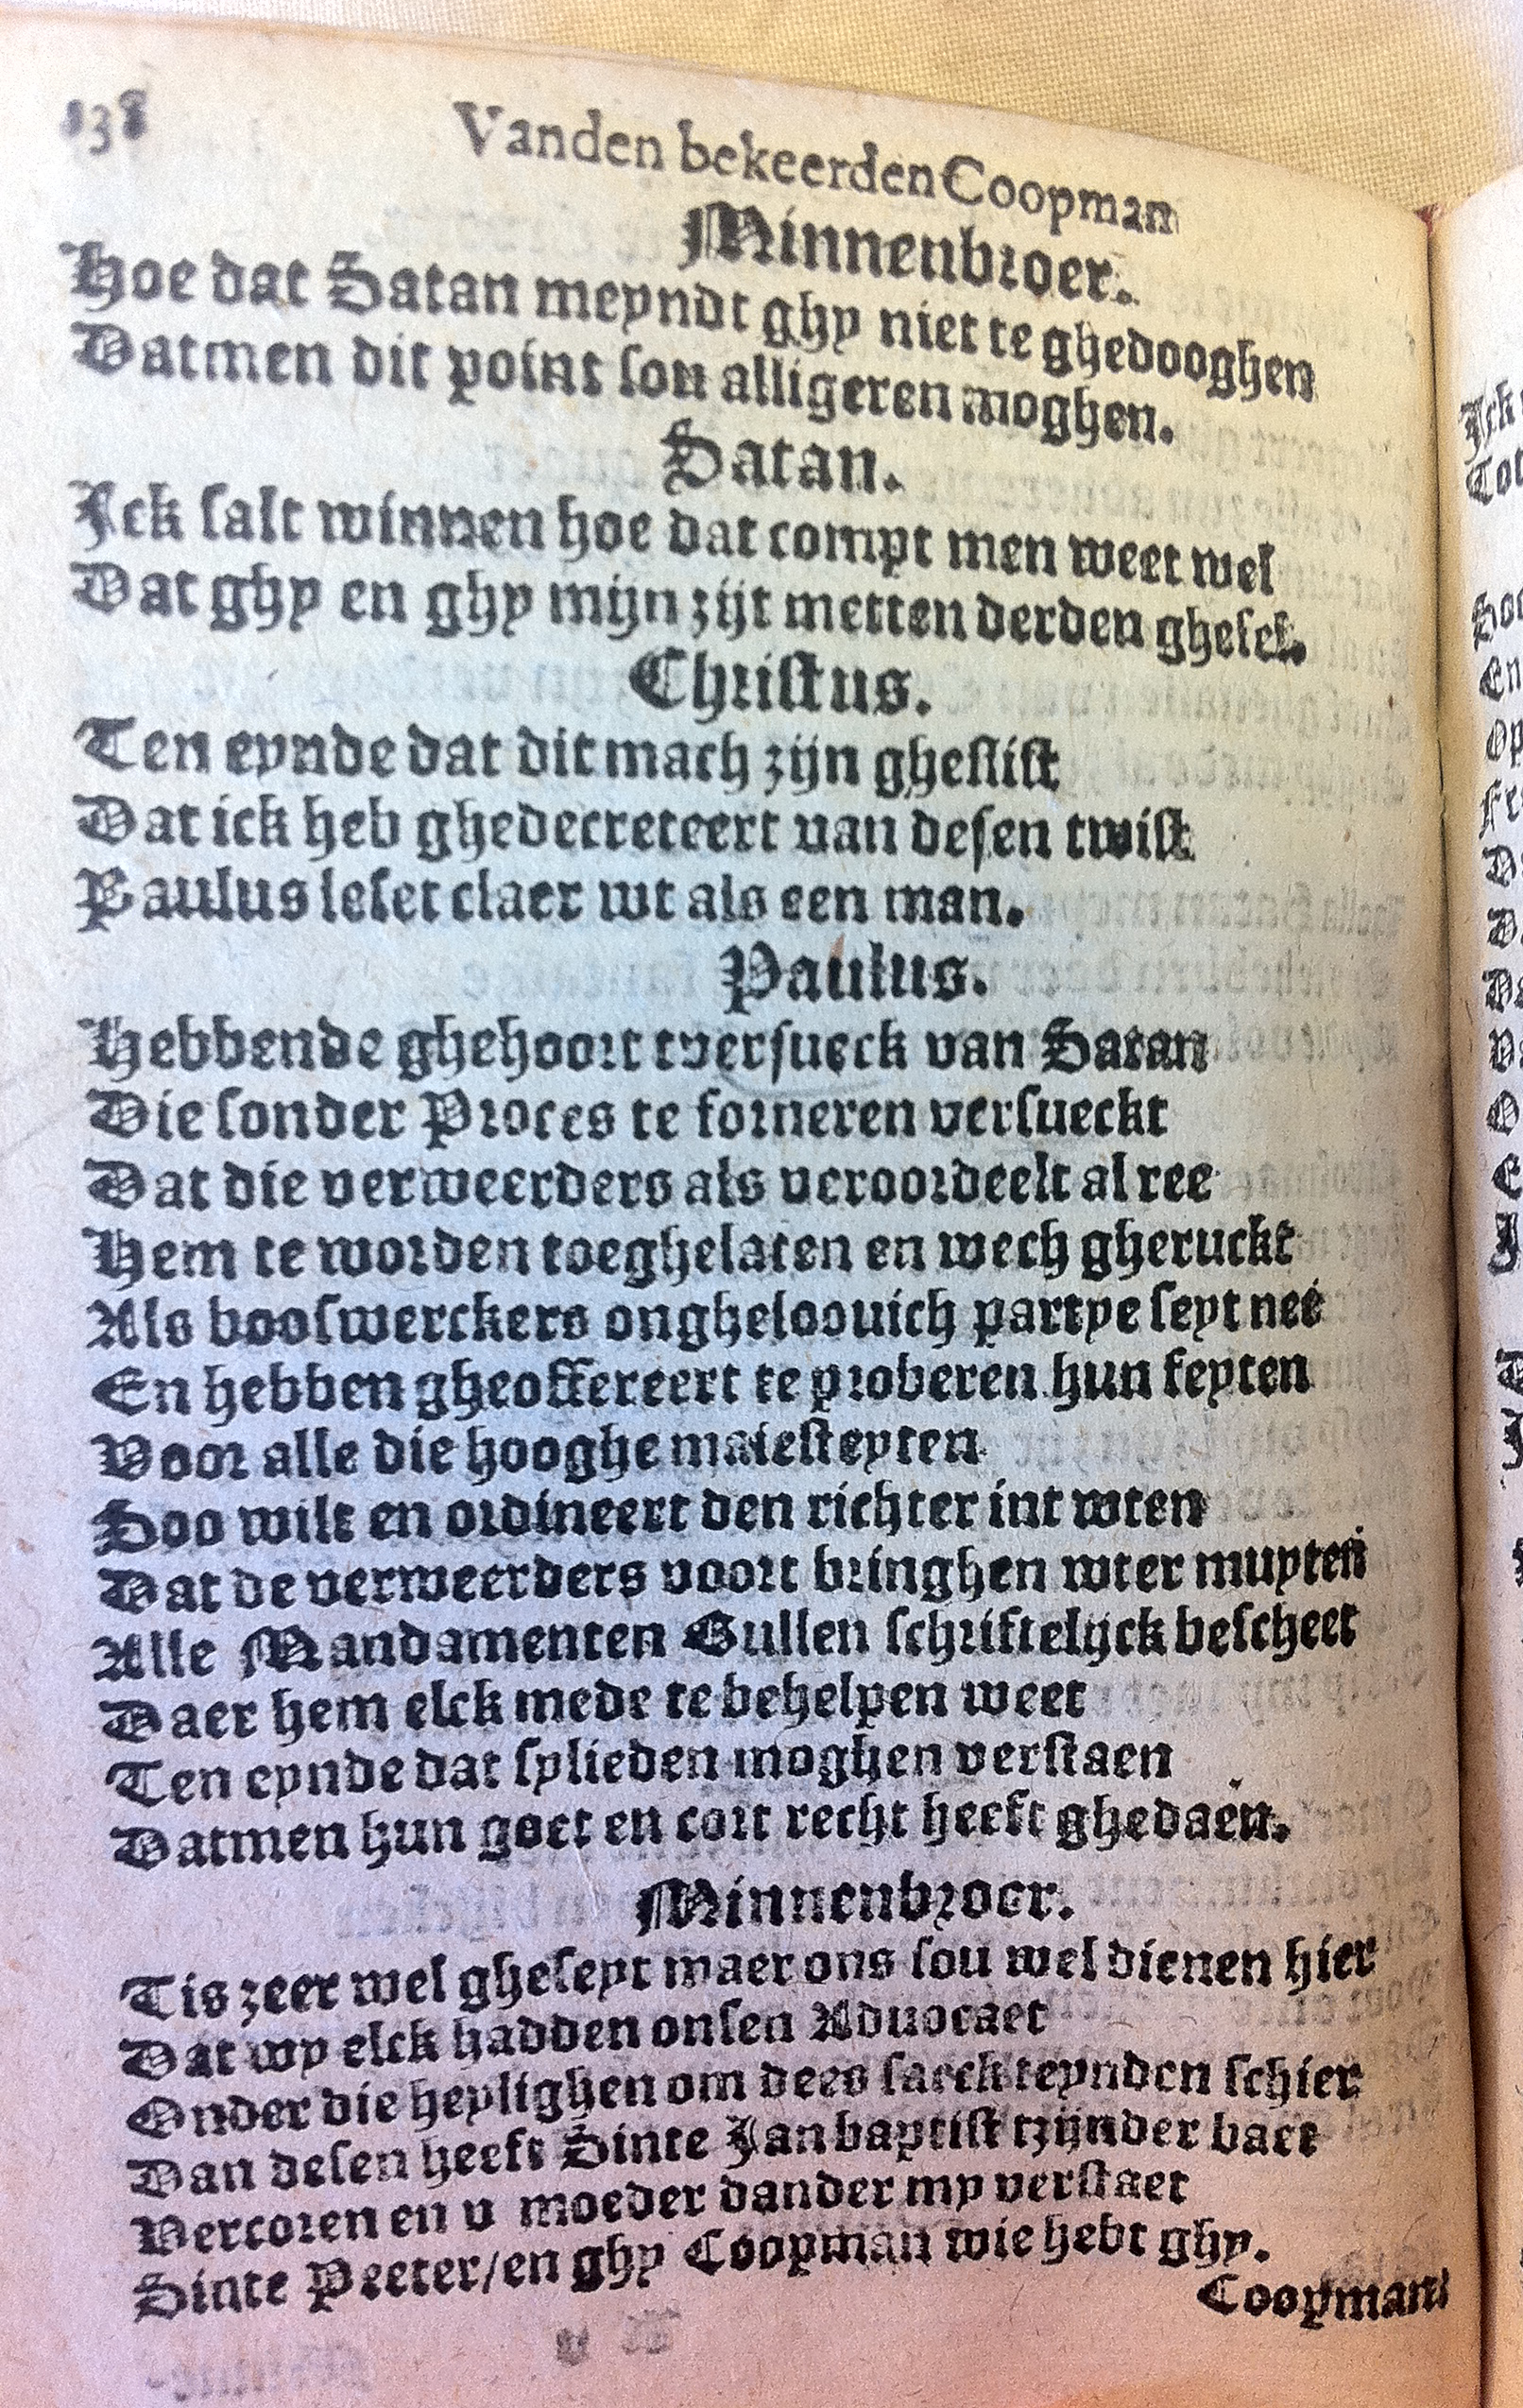 138
Vanden bekeerden Coopman
Minnenbroer.
Hoe dat Satan meyndt ghy niet te ghedooghen
Datmen dit point sou alligeren moghen.
Satan.
Ick salt winnen hoe dat compt men weet wel
Dat ghy en ghy mijn zijt metten derden ghesel.
Christus.
Ten eynde dat dit mach zijn gheslist
Dat ick heb ghedecreteert van desen twist
Paulus leset claer wt als een man.
Paulus.
Hebbende ghehoort tversueck van Satan
Die sonder Proces te formeren versueckt
Dat die verweerders als veroordeelt al ree
Hem te worden toeghelaten en wech gheruckt
Als booswerckers ongheloovich partye seyt nee
En hebben gheoffereert te proberen hun feyten
Voor alle die hooghe maiesteyten
Soo wilt en ordineert den richter int wten
Dat de verweerders voort bringhen wter muyten
Alle Mandamenten Bullen schriftelijck bescheet
Daer hem elck mede te behelpen weet
Ten eynde dat sylieden moghen verstaen
Datmen hun goet en cort recht heeft ghedaen.
Minnenbroer.
Tis zeer wel gheseyt maer ons sou wel dienen hier
Dat wy elck hadden onsen Advocaet
Onder die heylighen om dees saeck teynden schier
Dan desen heeft Sinte Jan baptist tzijnder baet
Vercoren en v moeder dander my verstaet
Sinte Peeter/en ghy Coopman wie hebt ghy.
Coopman